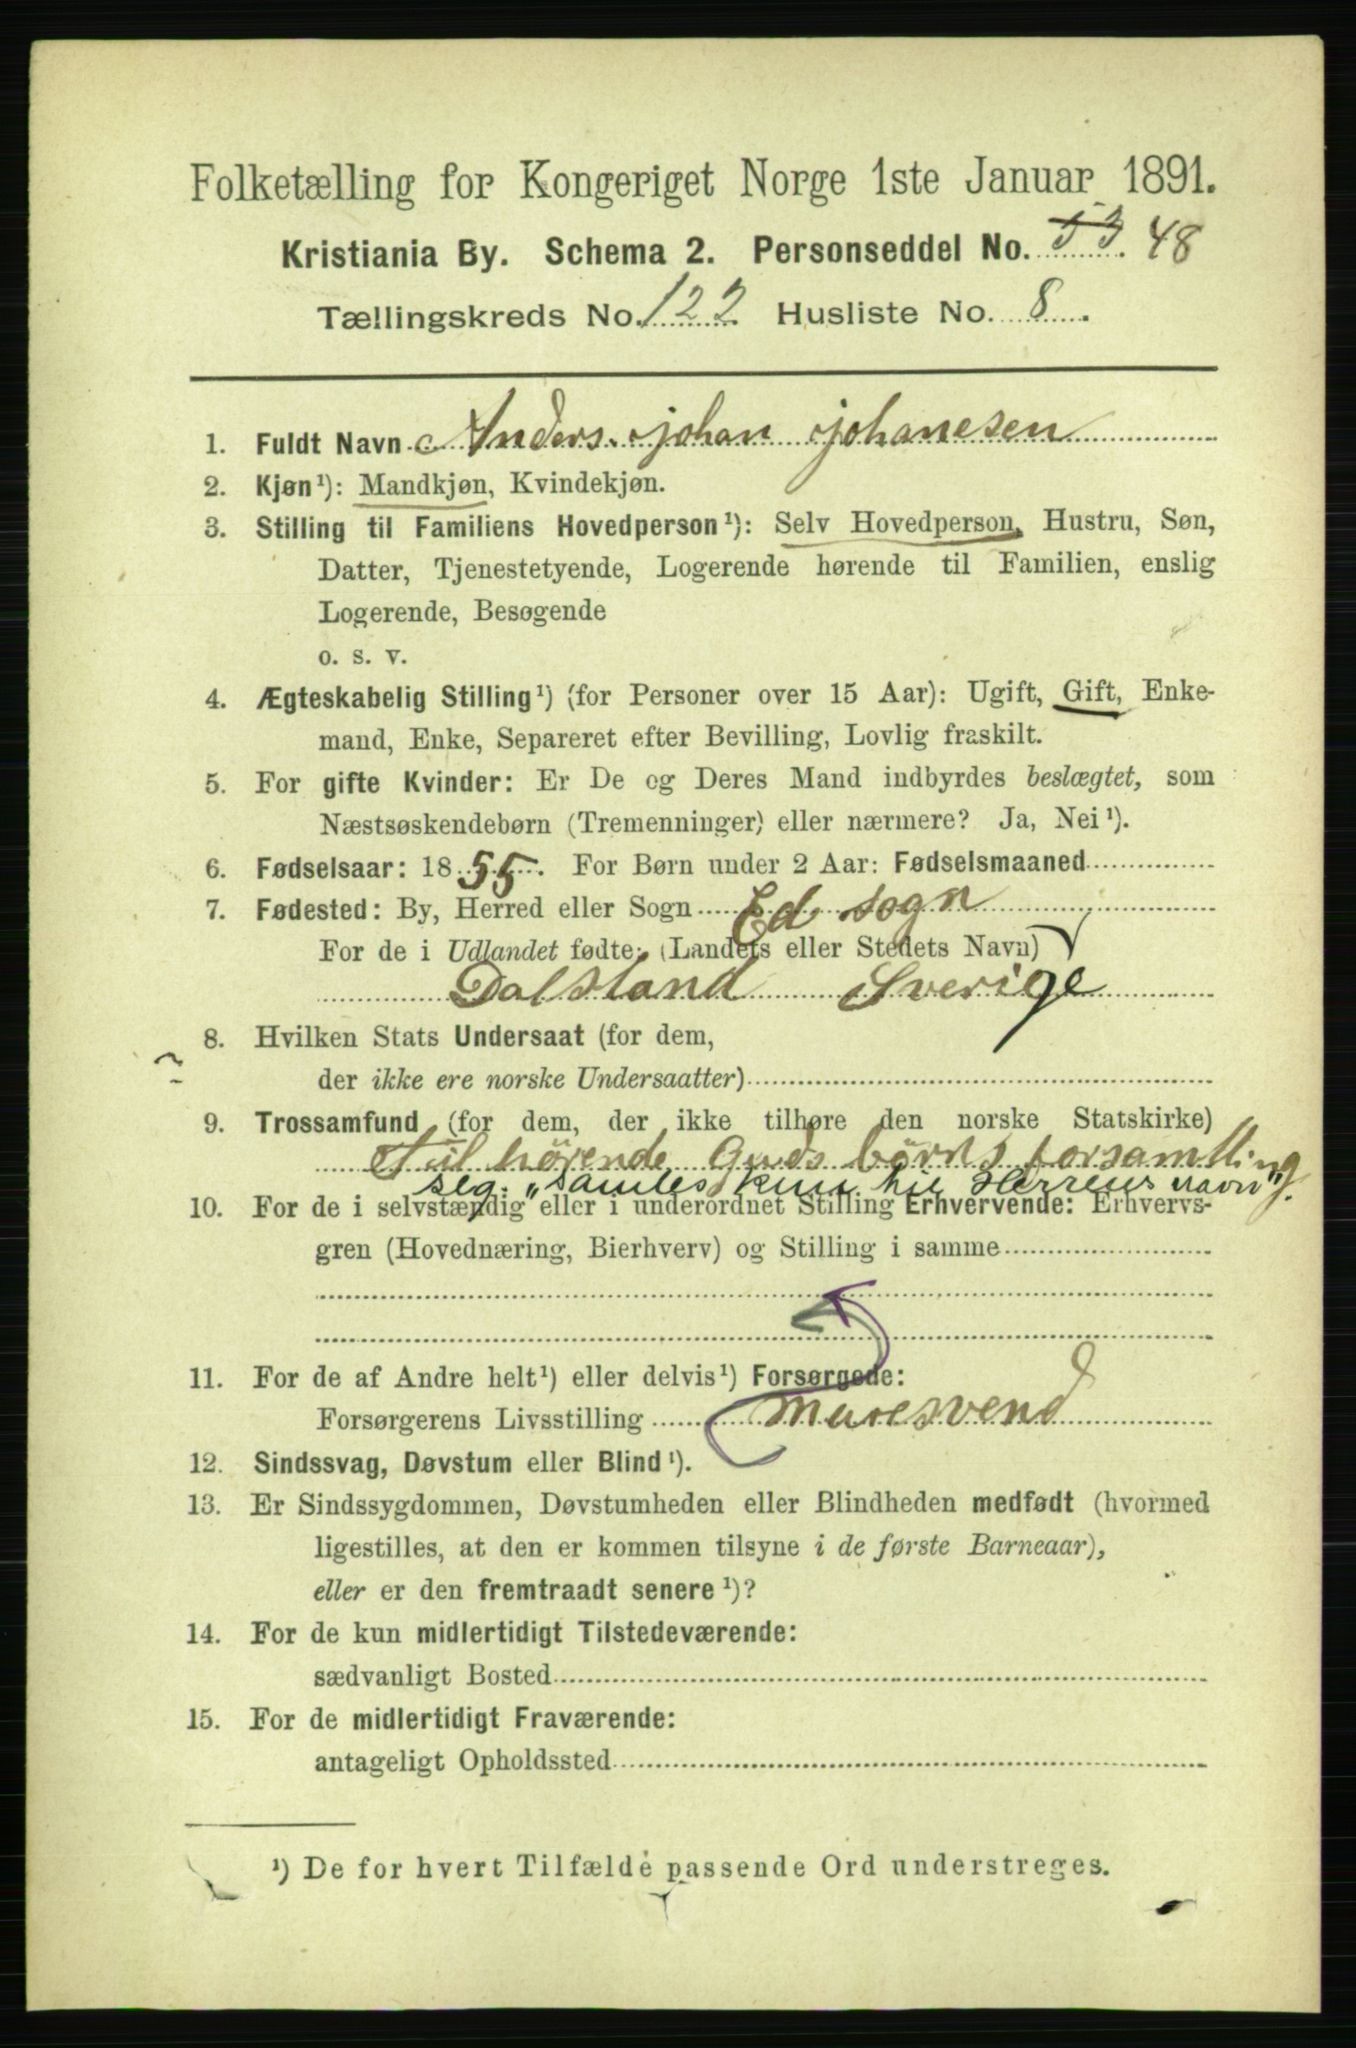 Folketælling for Kongeriget Norge 1ste Januar 1891.
Kristiania By. Schema 2. Personseddel No. 53. 48
Tællingskreds No. 122 Husliste No. 8.
1. Fuldt Navn Anders Johan Johanesen
2. Kjøn¹): Mandkjøn, Kvindekjøn.
3. Stilling til Familiens Hovedperson¹): Selv Hovedperson, Hustru, Søn,
Datter, Tjenestetyende, Logerende hørende til Familien, enslig
Logerende, Besøgende
o. s. v.
4. Ægteskabelig Stilling¹) (for Personer over 15 Aar): Ugift, Gift, Enke-
mand, Enke, Separeret efter Bevilling, Lovlig fraskilt.
5. For gifte Kvinder: Er De og Deres Mand indbyrdes beslægtet, som
Næstsøskendebørn (Tremenninger) eller nærmere? Ja, Nei¹).
6. Fødselsaar: 1855. For Børn under 2 Aar: Fødselsmaaned
7. Fødested: By, Herred eller Sogn Ed sogn
For de i Udlandet fødte: (Landets eller Stedets Navn)
Dalsland Sverige
8. Hvilken Stats Undersaat (for dem,
der ikke ere norske Undersaatter)
9. Trossamfund (for dem, der ikke tilhøre den norske Statskirke)
Til hørende Guds börns forsamtling
seg. "samles kun hie Herrens navn".
10. For de i selvstændig eller i underordnet Stilling Erhvervende: Erhvervs-
gren (Hovednæring, Bierhverv) og Stilling i samme
11. For de af Andre helt¹) eller delvis¹) Forsørgede:
Forsørgerens Livsstilling Muresvend
12. Sindssvag, Døvstum eller Blind¹).
13. Er Sindssygdommen, Døvstumheden eller Blindheden medfødt (hvormed
ligestilles, at den er kommen tilsyne i de første Barneaar),
eller er den fremtraadt senere¹)?
14. For de kun midlertidigt Tilstedeværende:
sædvanligt Bosted
15. For de midlertidigt Fraværende:
antageligt Opholdssted
¹) De for hvert Tilfælde passende Ord understreges.